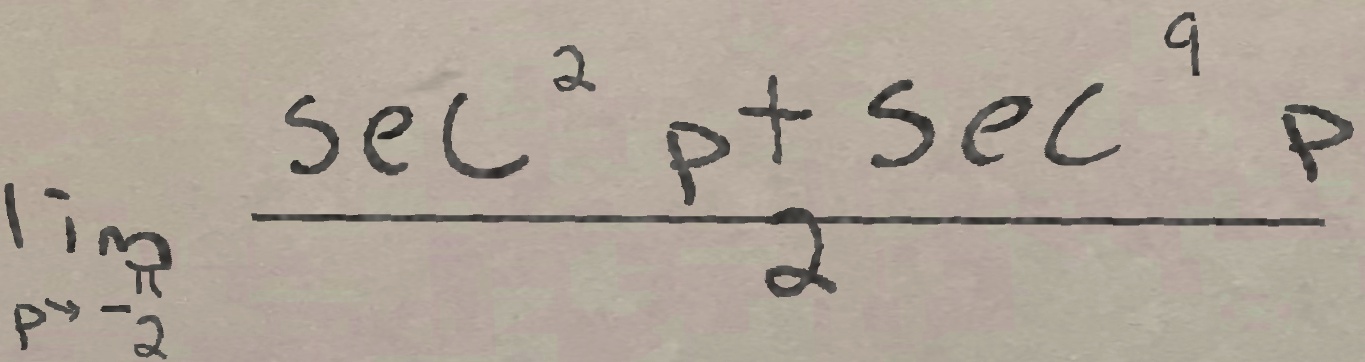 \lim_{p \to -\frac{\pi}{2}} \frac{\sec^{2} p + \sec^{9} p}{2}